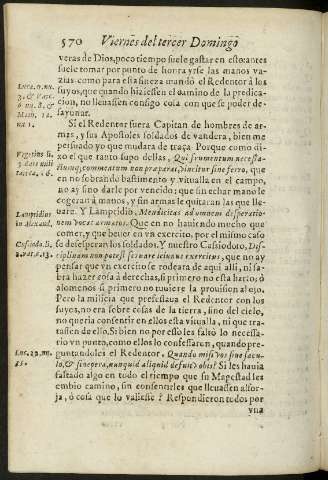 570 Viernes del tercer Domingo
veras de Dios, poco tiempo suele gastar en estoantes
suele tomar por punto de honra yrse las manos va-
zias como para esta fuerza mandò el Redentor à los
suyos, que quando hiziessen el camino de la predica-
cion, no lleuassen consigo cosa con que se poder de-
sayunar.
Si el Redentor fuera Capitan de hombres de ar-
mas, y sus Apostoles soldados de vandera, bien me
persuado yo que mudara de traça Porque como di-
xo el que tanto supo dellas, Qui frumentum necessa-
riumq; commeatum non præparat, vincitur sine ferro, que
en no sobrando bastimento y vitualla en el campo,
no ay sino darle por vencido; que sin echar mano le
cogeran à manos, y sin armas le quitaran las que lleua-
uare. Y Lampridio, Mendicitas ad omnem desperatio-
nem vocat armatos. Que en no hauiendo mucho que
comer, y que beuer en vn exercito, por el mismo caso
se desesperan los soldados. Y nuestro Casiodoro, Dis-
ciplinam non potest seruare ieiunus exercitus, que no ay
pensar que vn exercito se rodeara de aqui alli, ni sa-
bra hazer cosa à derechas, si primero no esta harto, ò
alomenos si primero no tuuiere la prouision alejo.
Pero la milicia que professaua el Redentor con los
suyos, no era sobre cosas de la tierra, sino del cielo,
no queria consentir en ellos esta vitualla, ni que tra-
tassen de ello. Si bien no por esso les faltò lo necessa-
rio vn punto, como ellos lo confessaron, quando pre-
guntandoles el Redentor, Quando misi vos sine sacu-
lo, & sine pera, nunquid aliquid defuit vobis? Si les hauia
faltado algo en todo el tiempo que su Magestad les
embio camino, sin consentirles que lleuassen alfor-
ja, ò cosa que lo valiesse? Respondieron todos por
vna
Luca. 9. nu.
3. & Marc.
6. nu. 8. &
Math. 10.
nu. 1.
Vegetius li.
3. de re mili
tari c. 26.
Lampridius
in Alexand.
Casiodo. li.
2. var. c. 13.
Luc. 22. nu.
35.